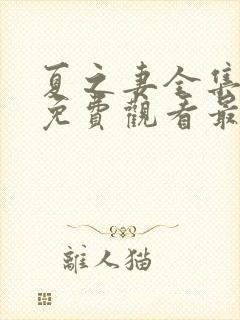 夏之妻全集
免費觀看最
離人猫